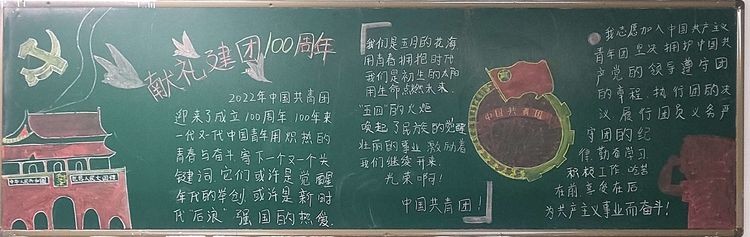 献礼建团100周年
2022年中国共青团
迎来了成立100周年 100年来
一代又一代中国青年用炽热的
青春与奋斗寄下一个又一个关
键词。它们或许是觉醒
年代的学创,或许是新时
代"后浪"强国的热爱.
中华人民共和国
世界人民大团结
我们是五月的花海
用青春拥抱时代
我们是初生的太阳
用生命点燃未来.
"五四"的火炬
唤起了民族的觉醒
壮丽的事业 激励着
我们继续开来.
光荣啊!
中国共青团!
中国共青团
我志愿加入中国共产主义
青年团 坚决拥护中国共
产党的领导 遵守团
的章程,执行团的决
议 履行团员义务 严
守团的纪
律,勤奋学习
积极工作 吃苦
在前 享受在后
为共产主义事业而奋斗!